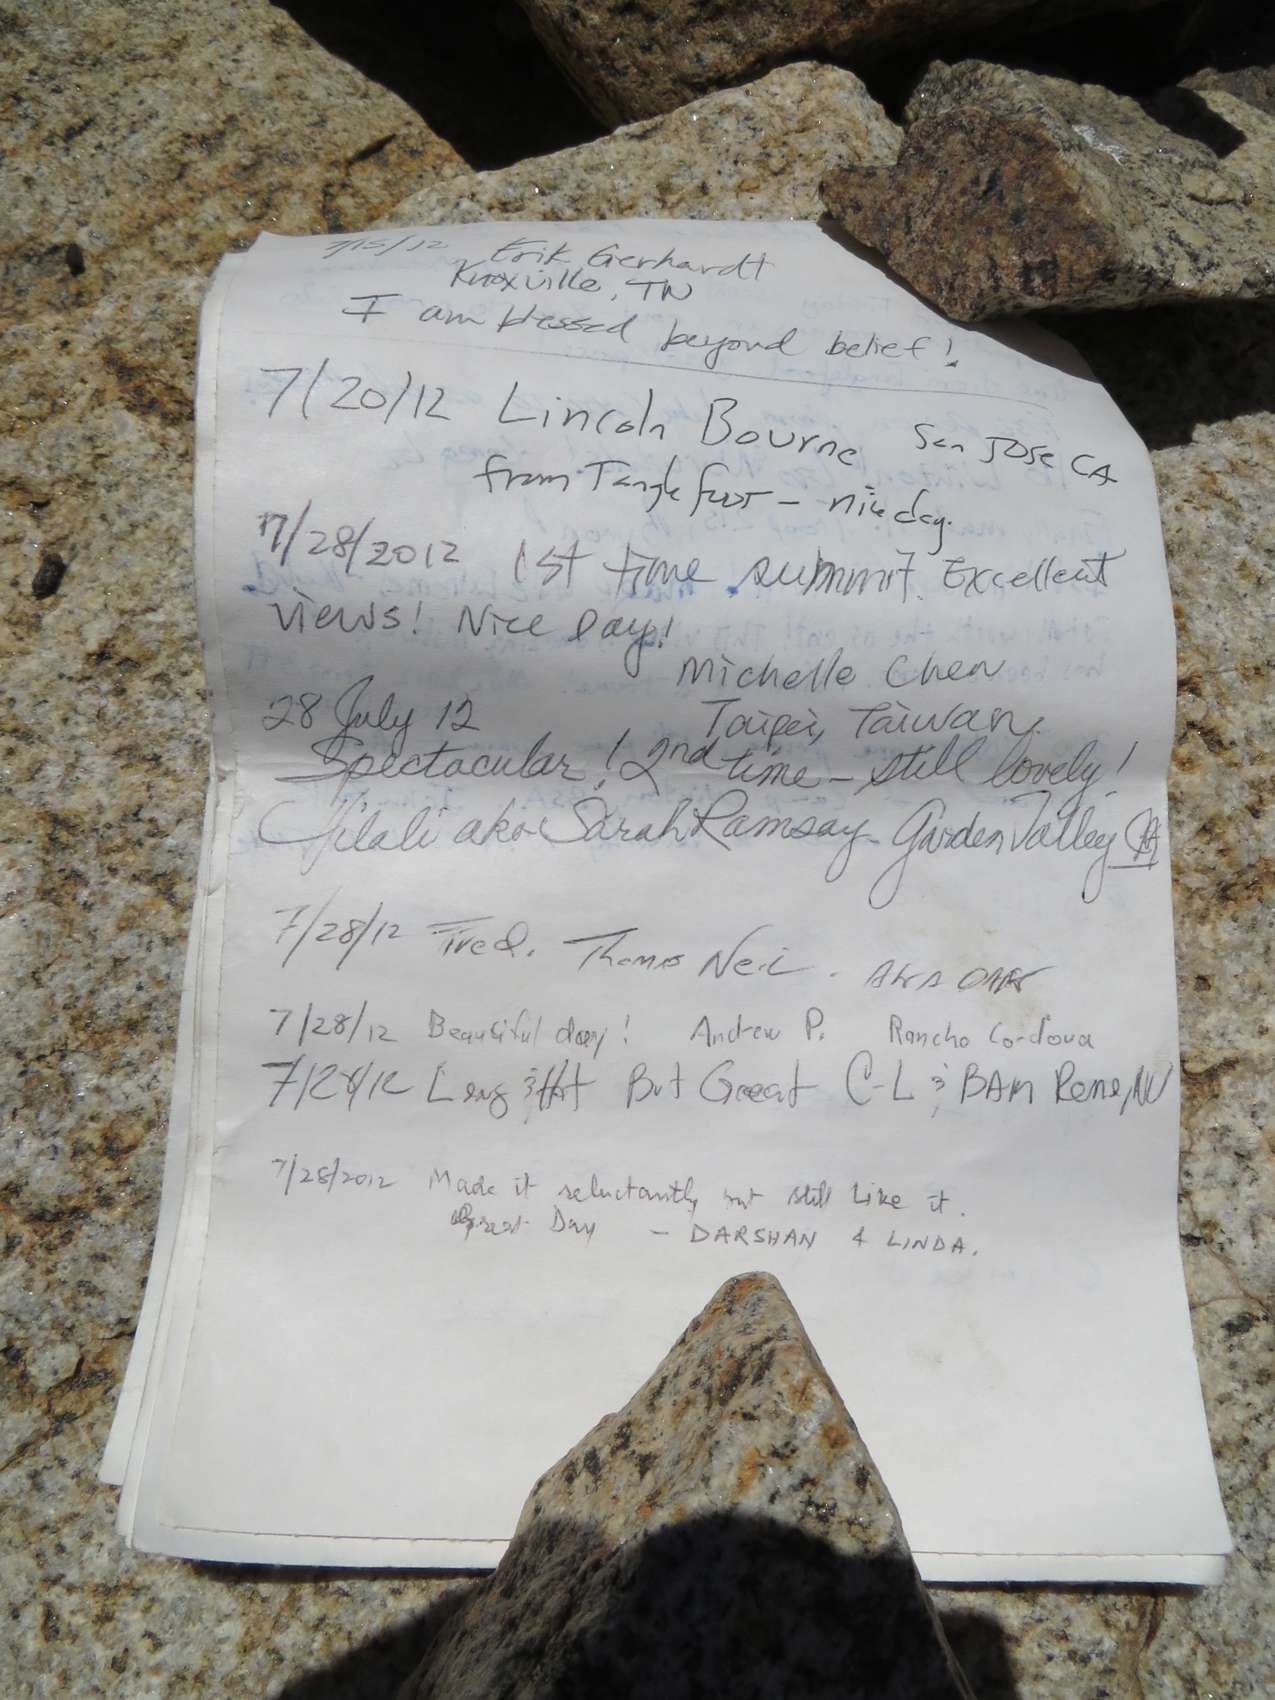 7/15/12 Erik Gerhardt
Knoxville, TN
I am blessed beyond belief!
7/20/12 Lincoln Bourne San JOSE CA
from Tanglefoot - nice day.
7/28/2012 1st time summit. Excellent
views! Nice Day!
Michelle Chen
28 July 12 Taipei, Taiwan
Spectacular! 2nd time - still lovely!
aka Sarah Ramsay Garden Valley CA
7/28/12 Tired. Thomas Neil. AKA
7/28/12 Beautiful day! Andrew P. Rancho Cordova
7/28/12 Long But Great C-L & BAM Reno, NV
7/28/2012 Made it reluctantly but still Like it.
Great Day - DARSHAN & LINDA.